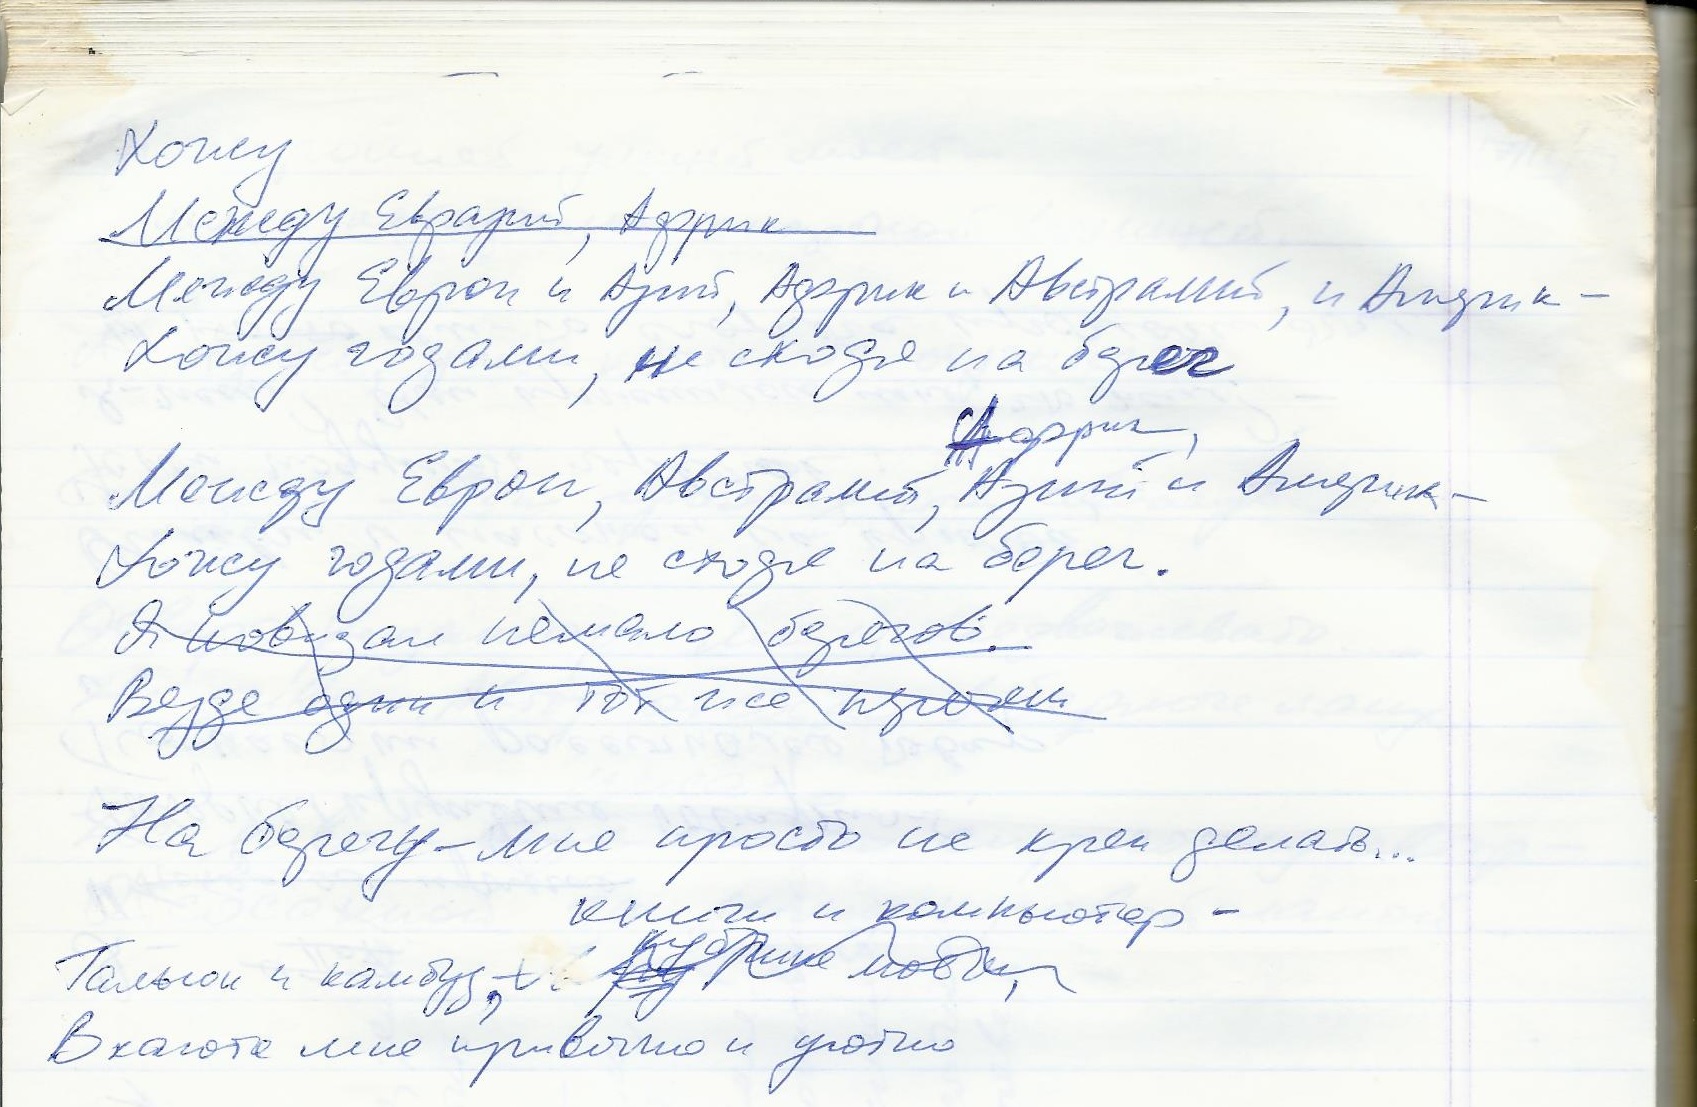 Хожу
Между Евразий, Африк
Между Европ и Азий, Африк и Австралий, и Америк –
Хожу годами, не сходя на берег
Африк,
Между Европ, Австралий, Азий и Америк –
Хожу годами, не сходя на берег.
Я повидал немало берегов.
Везде одни и тот же
На берегу – мне просто не хрен делать...
книги и компьютер –
Гальюн и камбуз, кубрике
В каюте мне привычно и уютно